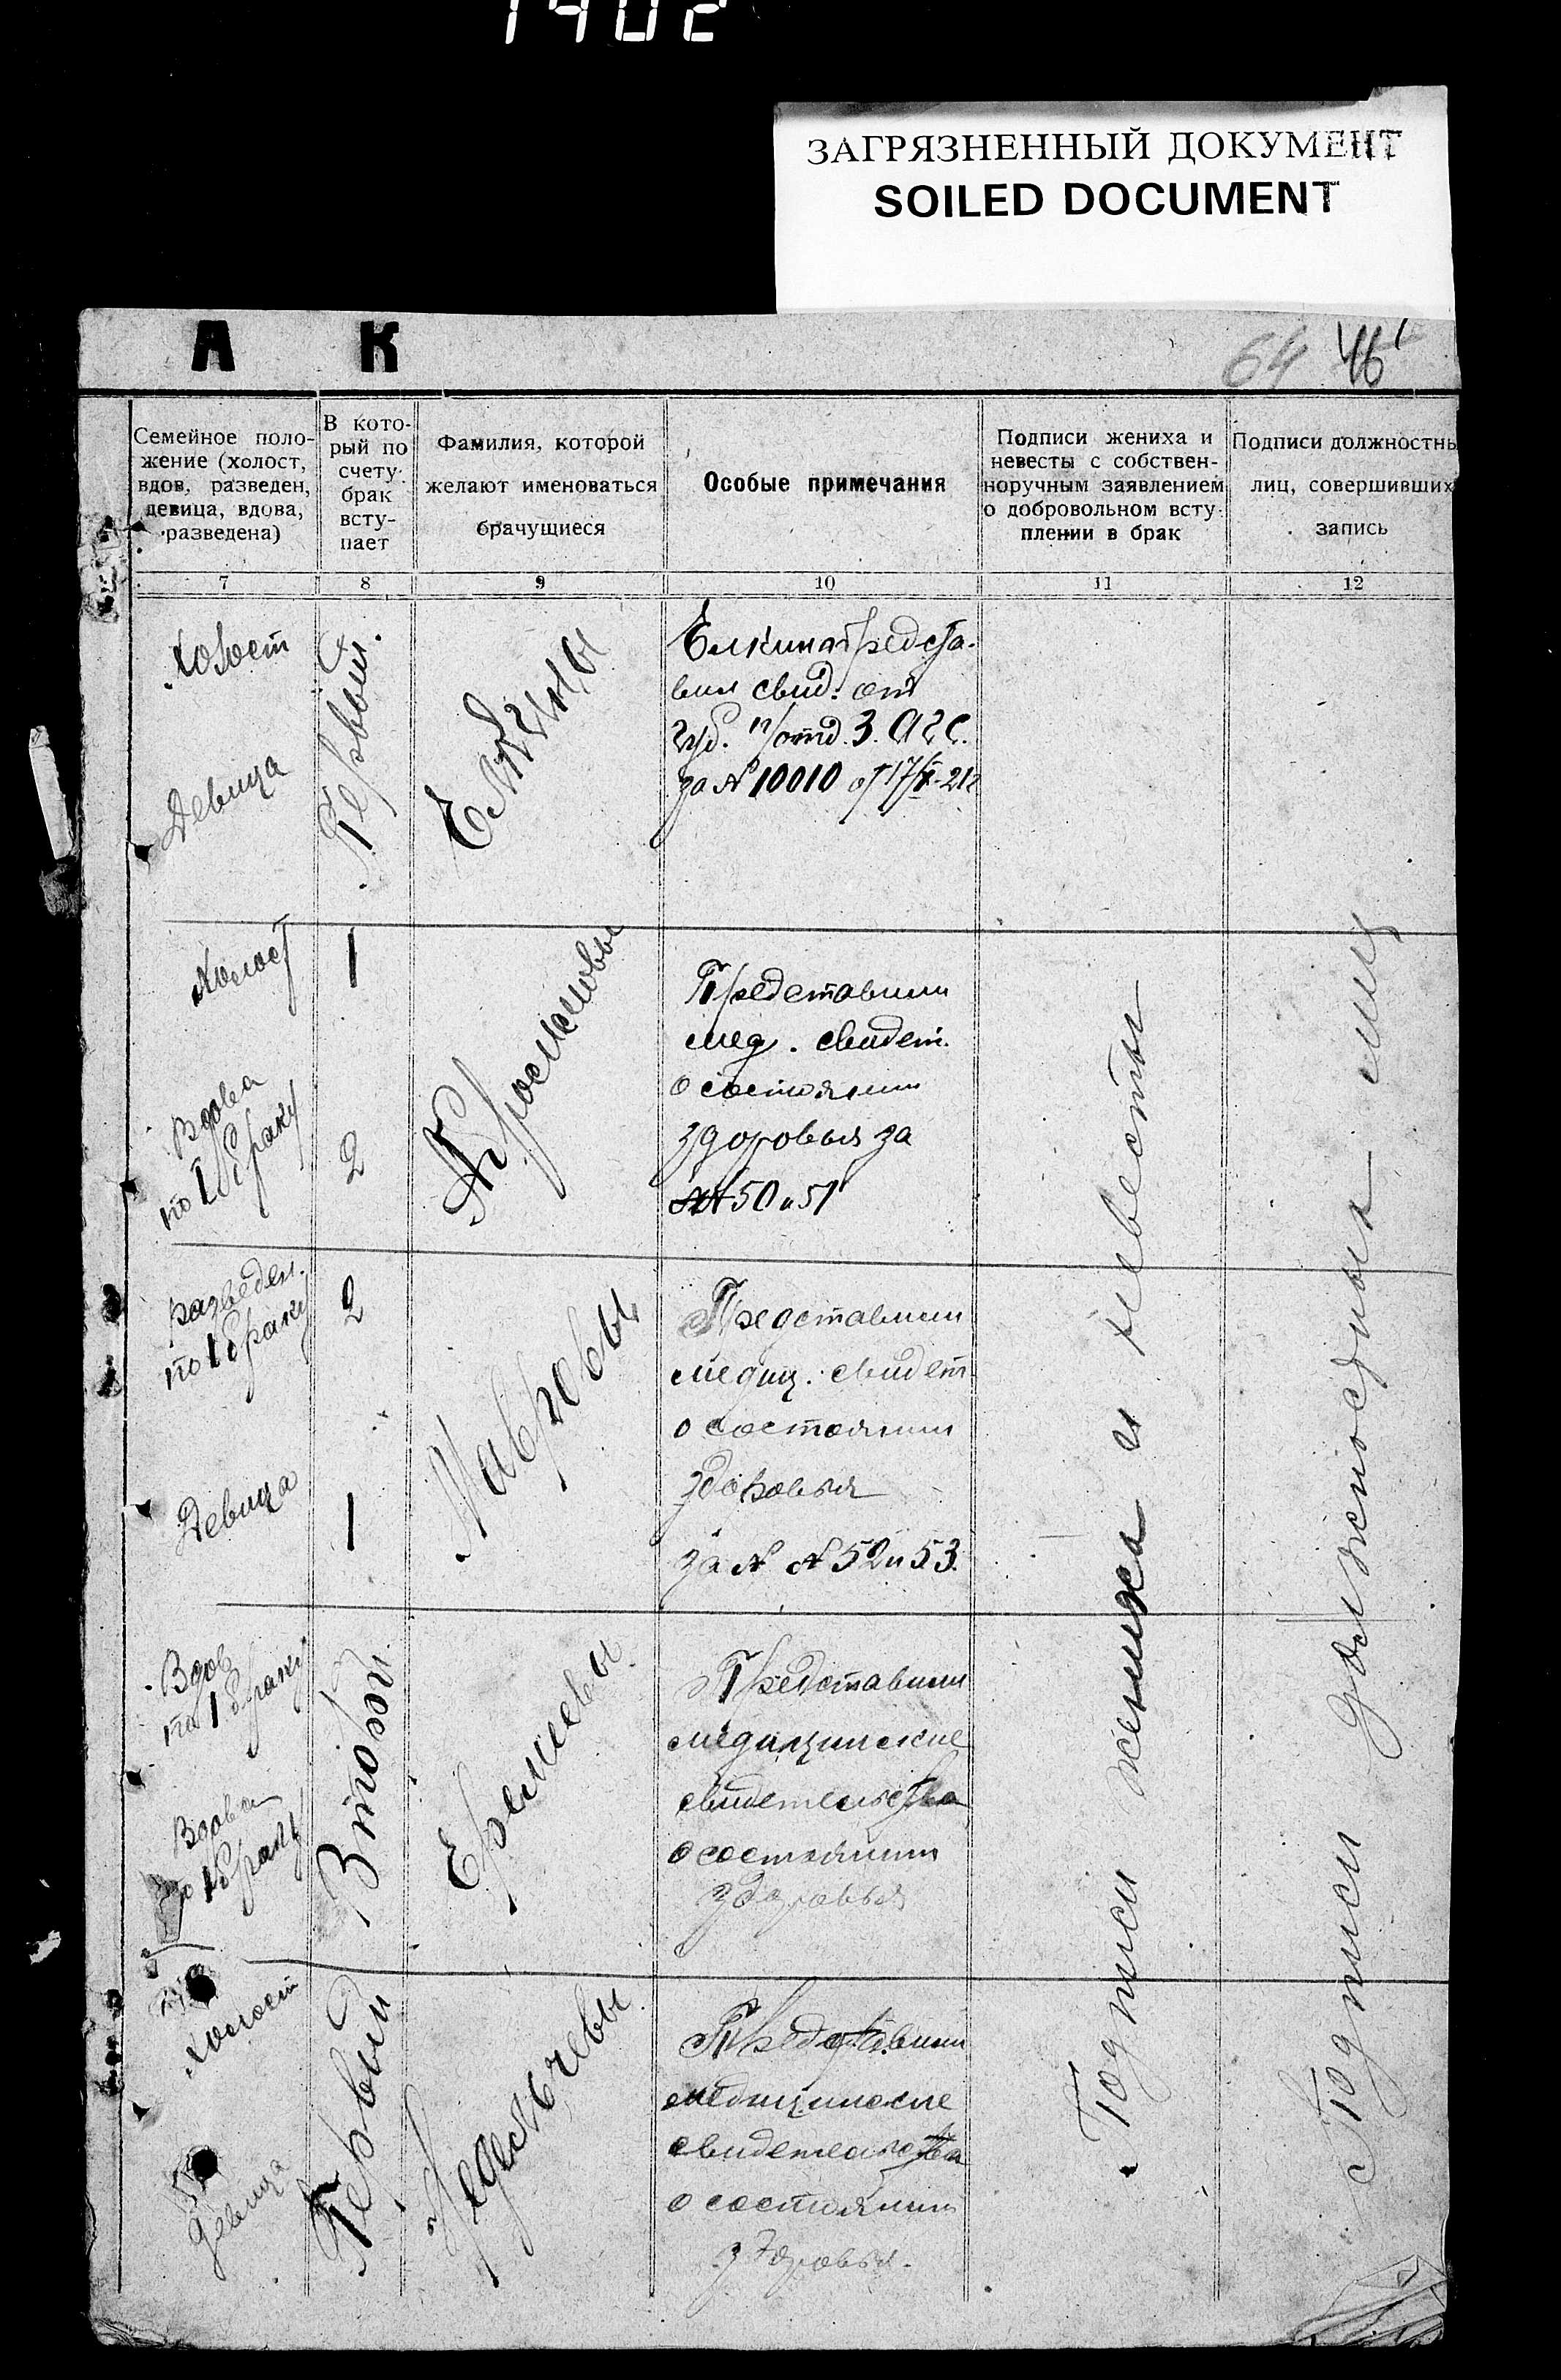 1902
ЗАГРЯЗНЕННЫЙ ДОКУМЕНТ
SOILED DOCUMENT
А К
64 46
Семейное поло-
жение (холост,
вдов, разведен,
девица, вдова,
разведена)
В кото-
рый по
счету
брак
всту-
пает
Фамилия, которой
желают именоваться
брачущиеся
Особые примечания
Подписи жениха и
невесты с собствен-
норучным заявлением
о добровольном всту-
плении в брак
Подписи должностн
лиц, совершивших
запись
7 8 9 10 11 12
Холост
Девица
Первый
Елкины
Елкина предста-
вил свид. от
губ. п/отд. З.АГС.
за № 10010 от 17/X-21г
Холост
1
Вдова
по 1 браку
2
Абросимовы
Представили
мед. свидет.
о состоянии
здоровья за
№№ 50 и 51
разведен.
по 1 браку
2
Девица
1
Мавровы
Представили
медиц. свидет
о состоянии
здоровья
за № № 52 и 53.
Вдов
по 1 браку
Вдова
по 1 браку
Второй
Еремеевы
Представили
медицинские
свидетельства
о состоянии
здоровья
Холост
девица
Первый
Представили
медицинские
свидетельства
о состоянии
здоровья.
Подписи жениха и невесты
Подписи должностных лиц